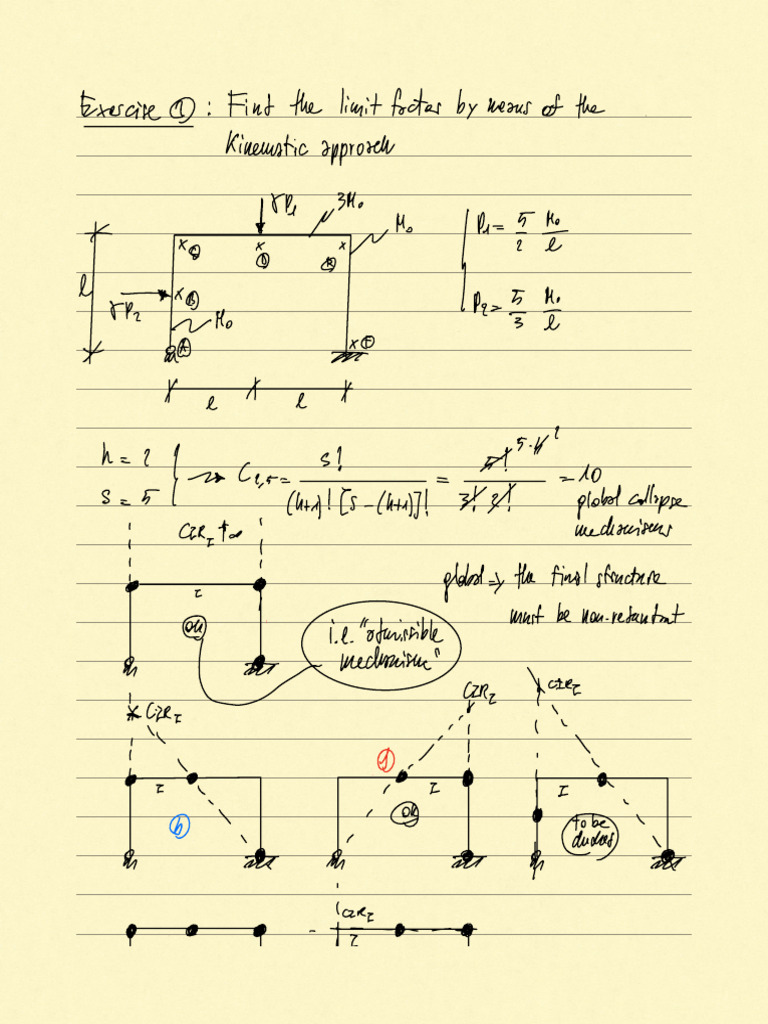 Exercise ① : Find the limit factor by means of the
Kinematic approach
γP₁
3M₀
M₀
P₁ = 5/2 M₀/l
C
D
E
l
γP₂
B
M₀
P₂ = 5/3 M₀/l
A
F
l l
h = 2
s = 5
C₂,₅ = s! / (h+1)! [s-(h+1)]! = 5! / 3! 2! = 10
5·4 2
global collapse
mechanisms
CIR_I ↑∞
global => the final structure
must be non-redundant
I
OK
i.e. "admissible
mechanism"
CIR_I
I
h
CIR_I
g
I
OK
CIR_I
I
to be
CIR_I
I